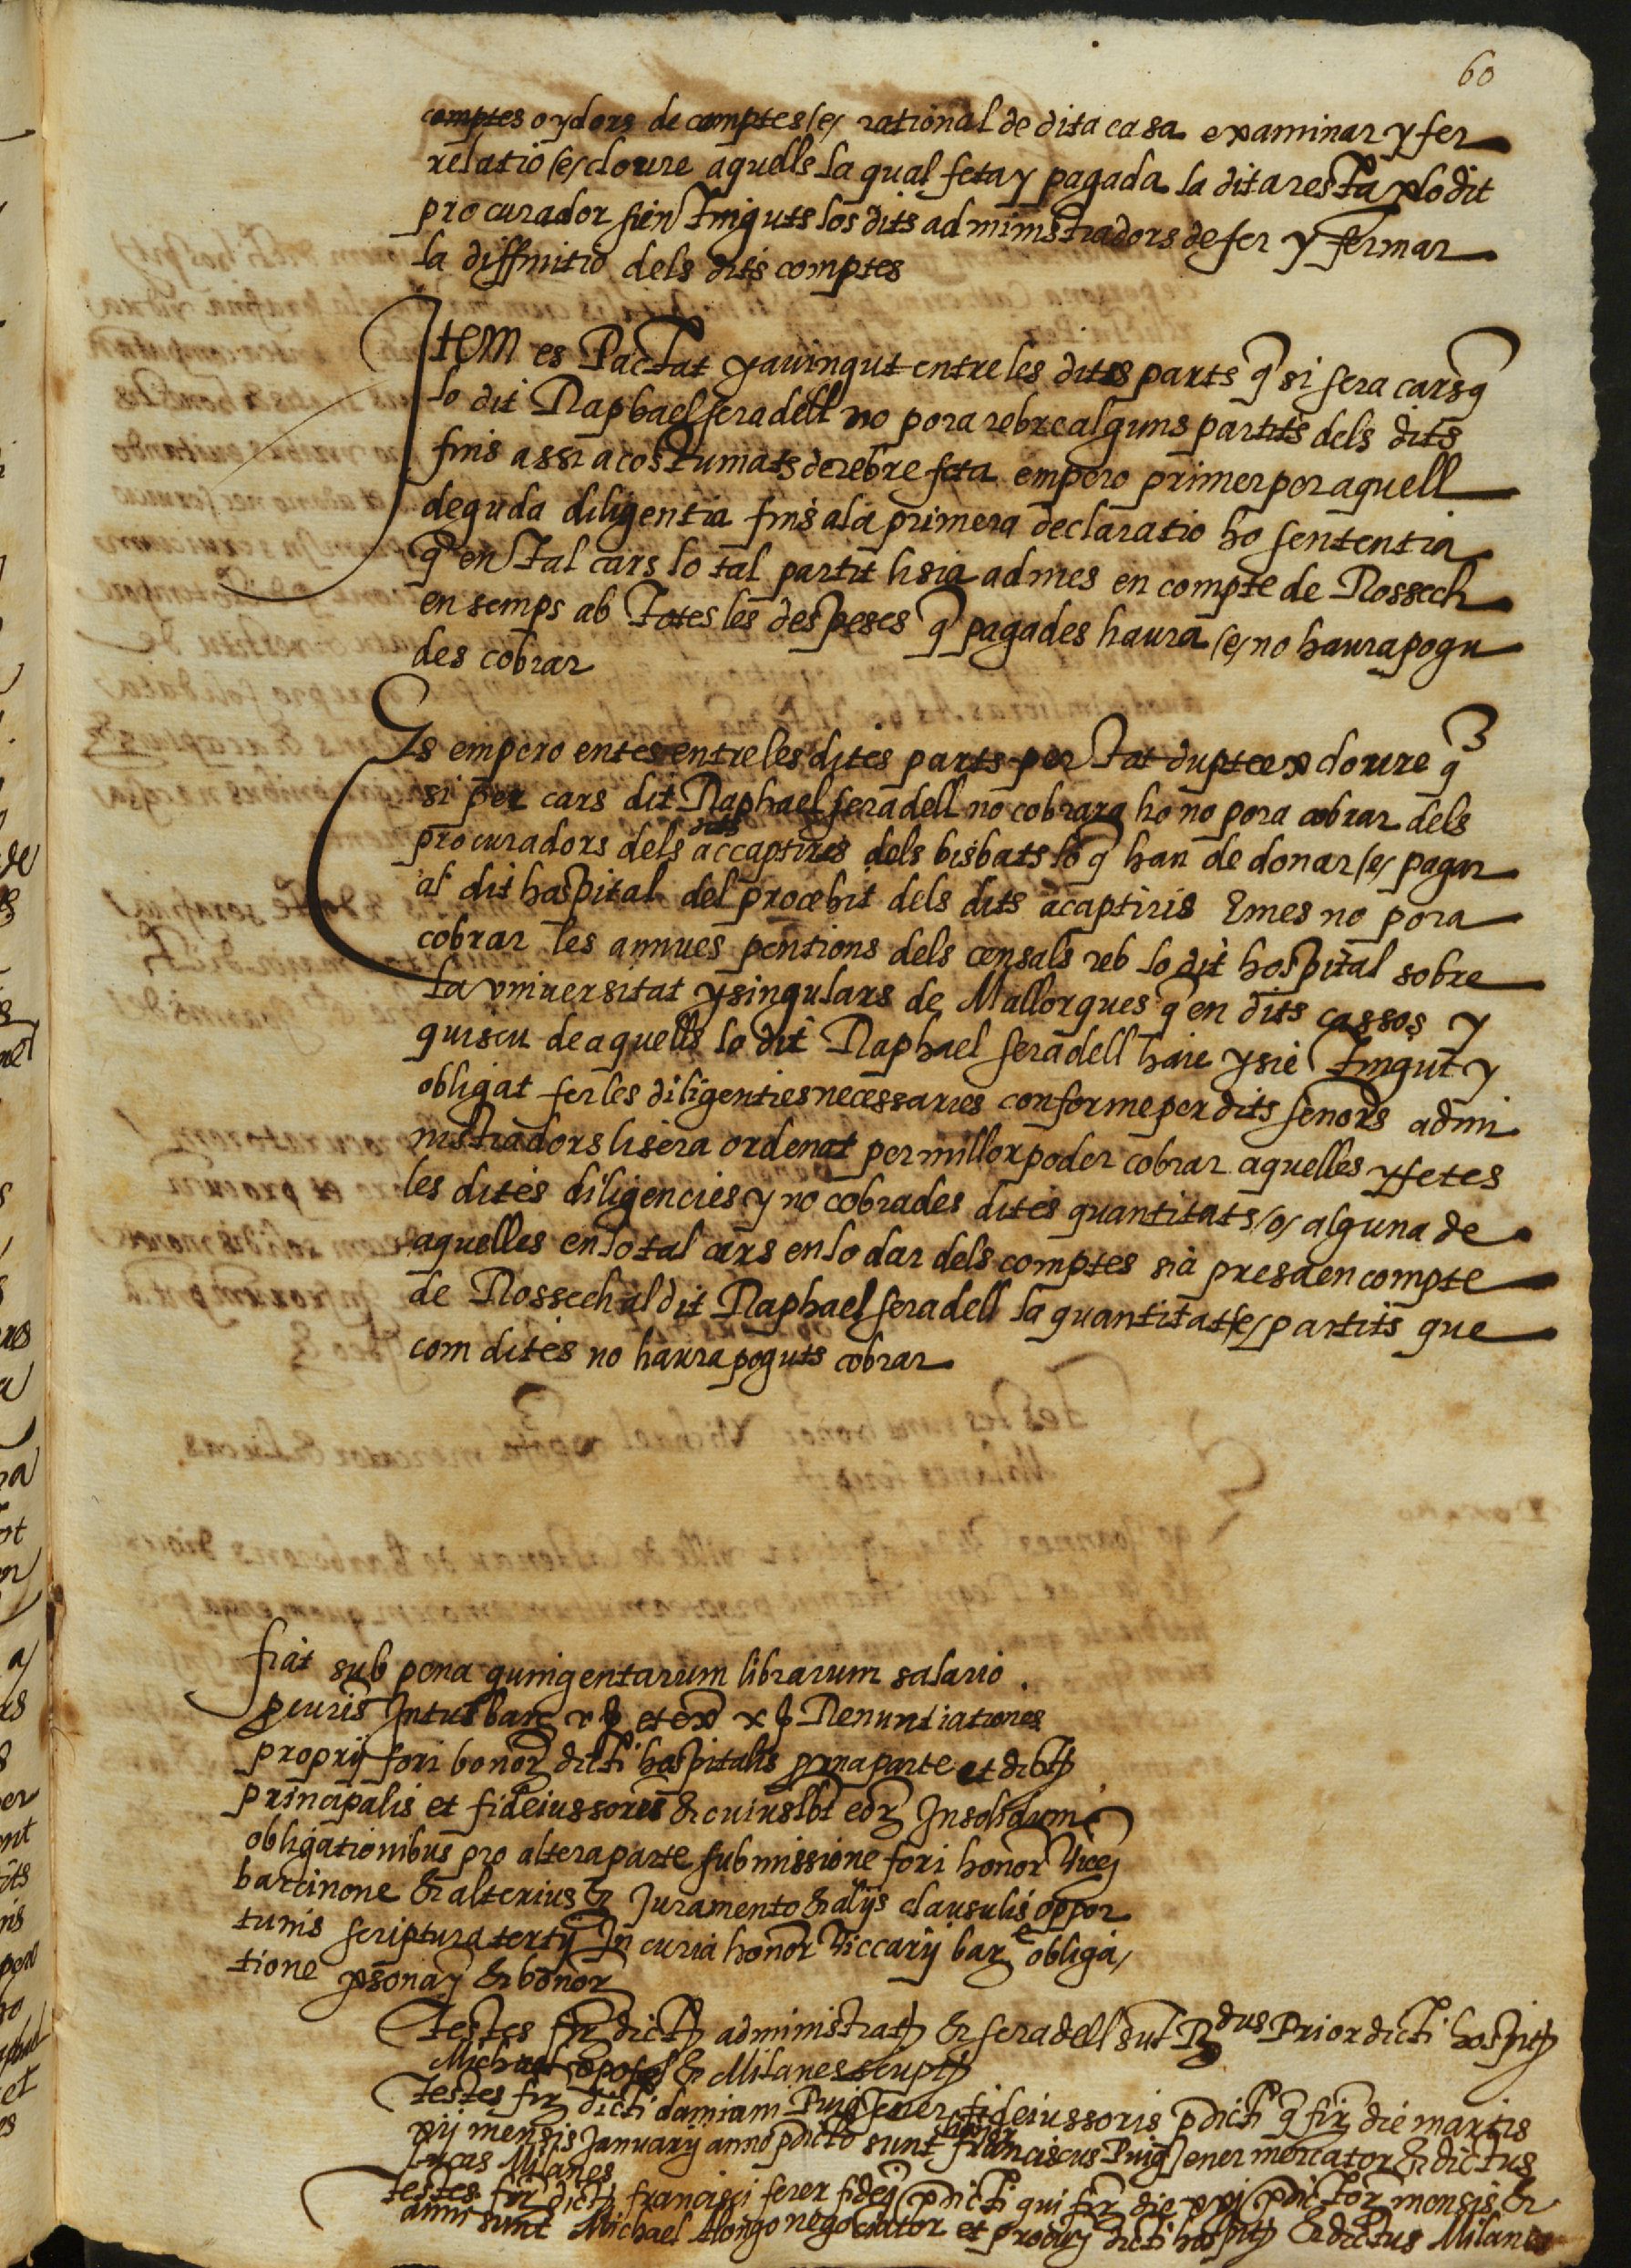 60
comptes oydors de comptes /e/ rational de dita casa examinar y fer
relatio /e/ cloure aquells la qual feta y pagada la dita resta p lo dit
procurador sien tinguts los dits administradors de fer y fermar
la diffinitio dels dits comptes
Item es Pactat y avingut entre les dites parts q si sera cars q
lo dit Raphael seradell no pora rebre alguns partits dels dits
fins assi acostumats de rebre feta empero primer per aquell
deguda diligentia fins a la primera declaratio ho sententia
q en tal cars lo tal partit li sia admes en compte de Rossech
ensemps ab totes les despeses q pagades haura /e/ no haura pogu
des cobrar
Es empero entes entre les dites parts per tot dupte excloure q
si per cars dit Raphael seradell no cobrara ho no pora cobrar dels
procuradors dels dits accaptiris dels bisbats lo q han de donar /e/ pagar
al dit hospital del procehit dels dits acaptiris E mes no pora
cobrar les annues pentions dels censals reb lo dit hospital sobre
la vniuersitat y singulars de Mallorques q en dits cassos y
quiscu de aquells lo dit Raphael seradell haie y sie tingut y
obligat fer les diligenties necessaries conforme per dits senors admi
nistradors li sera ordenat per millor poder cobrar aquelles y fetes
les dites diligencies y no cobrades dites quantitats /o/ alguna de
aquelles en lo tal cars en lo dar dels comptes sia presa en compte
de Rossech al dit Raphael seradell la quantitat /e/ partits que
com dites no haura poguts cobrar
fiat sub pena quingentarum librarum salario
pcuris Intus bar x ß et ex xß Renuntiationes
proprij fori bonor dicti hospitalis pro vna parte et dicti
principalis et fideiussores & cuiuslbt eor Insolidum
obligationibus pro altera parte submissione fori honor Vicej
barcinone & alterius & Juramento & alijs clausulis oppor
tunis scriptura tertij In curia honor Viccarij bar e obliga/
tione psonar & bonor
Testes fir dictor administrat & seradell sut Rdus Prior dicti hospit
Michael & Milanes script
Testes fir dicti damiam Puig Jener fideiussoris pdicti q fir die martis
xij mensis Januarij anno pdicto sunt franciscus Puig Jener mercator & dictus
Lucas Milanes
Testes fir dicti francisci ferer fidej pdicti qui fir die xxj pdictor mensis &
anni sunt Michael Alongo negociator et procurj dicti hospit & dictus Milanes